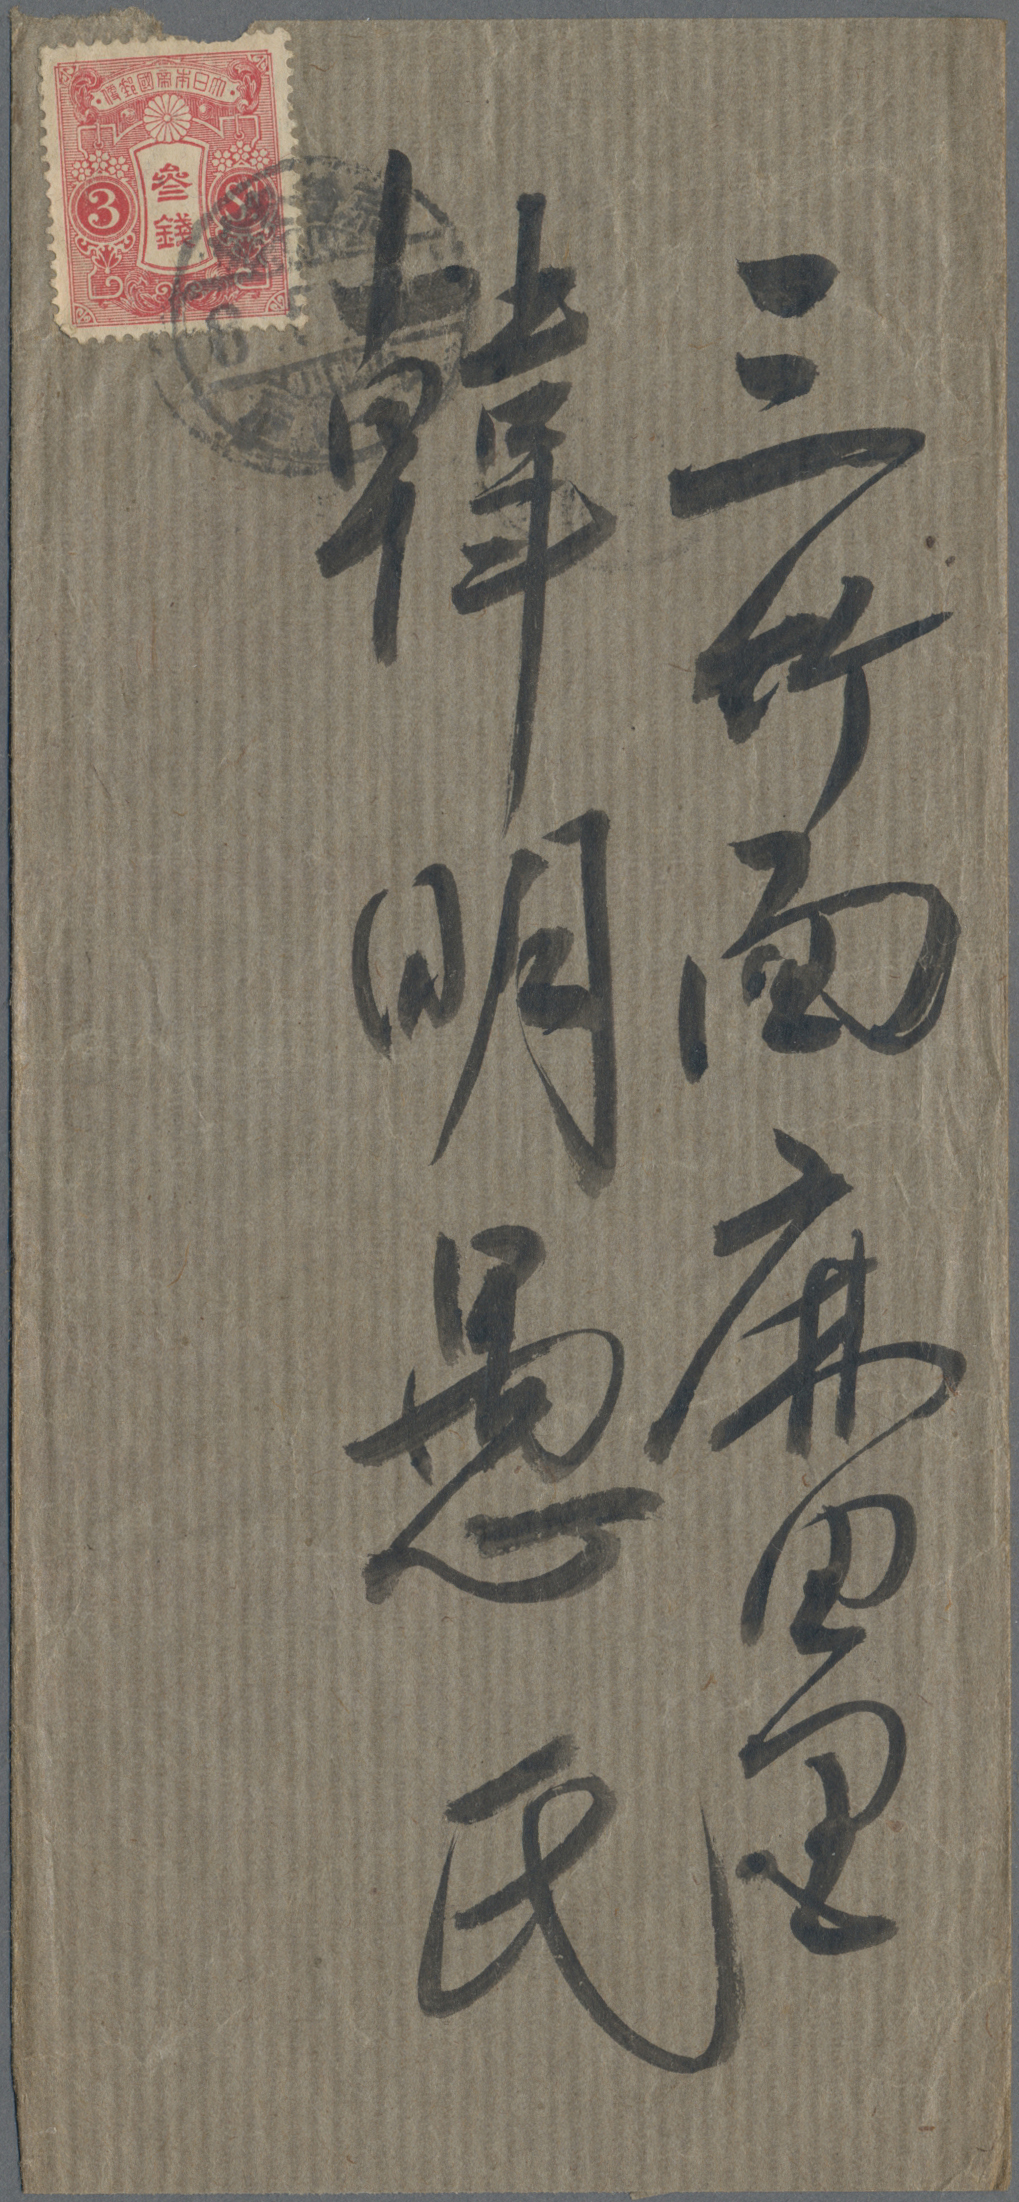 三所面麻田里
韓明愚氏
大日本帝國郵便
參錢
3